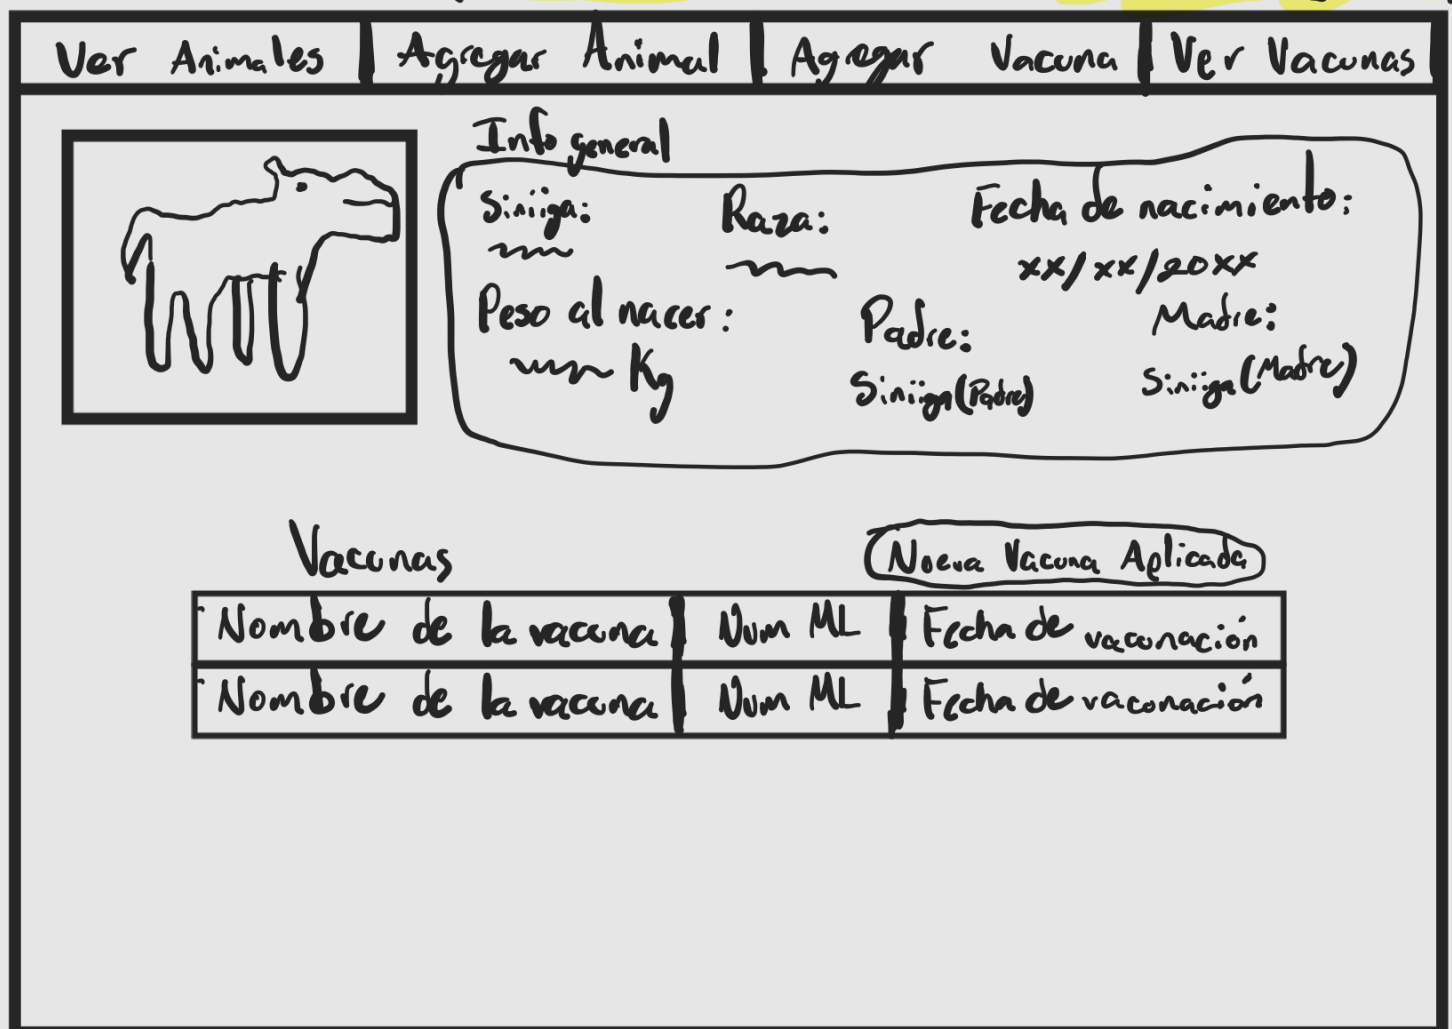 Ver Animales Agregar Animal Agregar Vacuna Ver Vacunas
Info general
Siniiga: Raza: Fecha de nacimiento:
xx/xx/20xx
Peso al nacer: Padre: Madre:
Kg Siniiga(Padre) Siniiga(Madre)
Vacunas Nueva Vacuna Aplicada
Nombre de la vacuna Num ML Fecha de vacunación
Nombre de la vacuna Num ML Fecha de vacunación